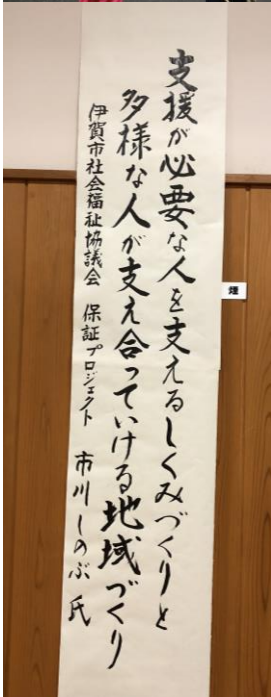 支援が必要な人を支えるしくみづくりと
多様な人が支え合っていける地域づくり
伊賀市社会福祉協議会 保証プロジェクト 市川しのぶ氏